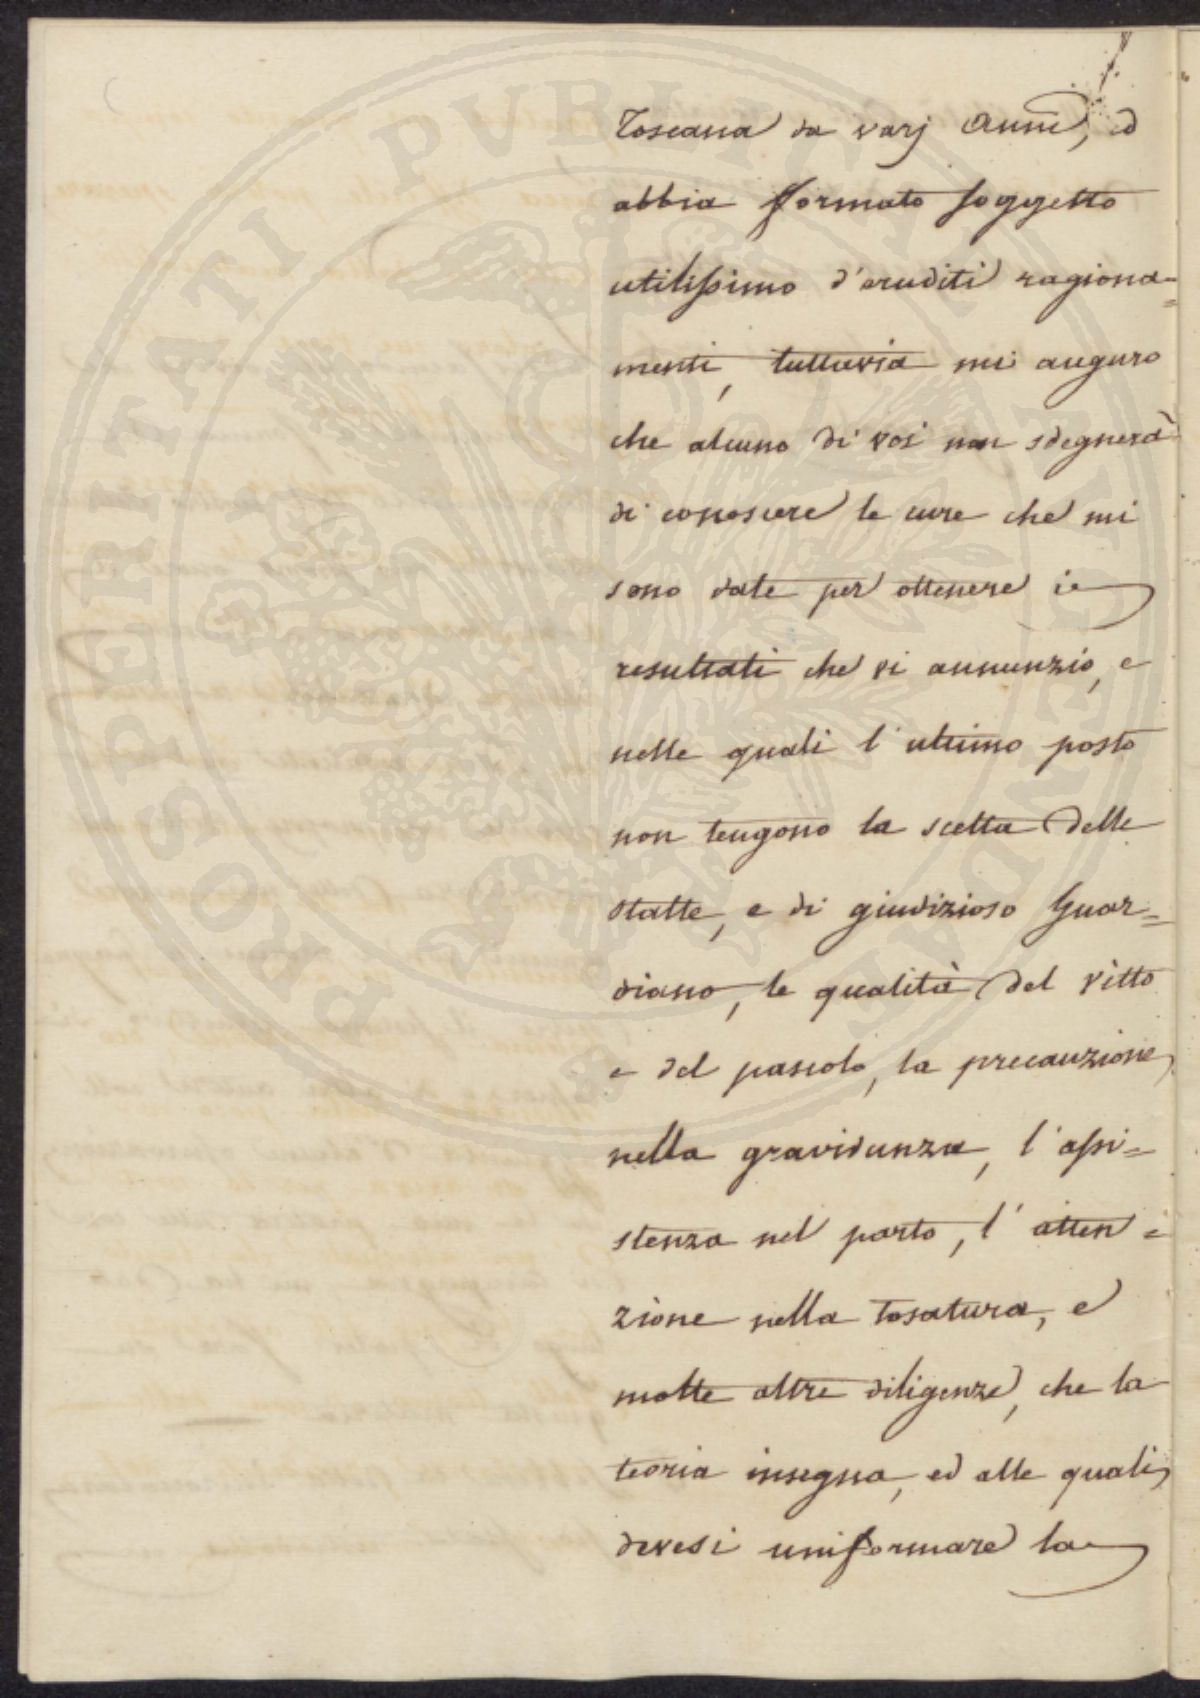 Toscana da varj Anni, ed
abbia formato soggetto
utilissimo d'eruditi ragiona=
menti, tuttavia mi auguro
che alcuno di voi non sdegnerà
di conoscere le cure che mi
sono date per ottenere i
resultati che vi annunzio, e
nelle quali l'ultimo posto
non tengono la scelta delle
stalle, e di giudizioso Guar=
diano, le qualità del vitto
e del pascolo, la precauzione
nella gravidanza, l'assi=
stenza nel parto, l'atten=
zione nella tosatura, e
molte altre diligenze, che la
teoria insegna, ed alle quali
devesi uniformare la
PROSPERITATI PUBLICAE AUGENDAE